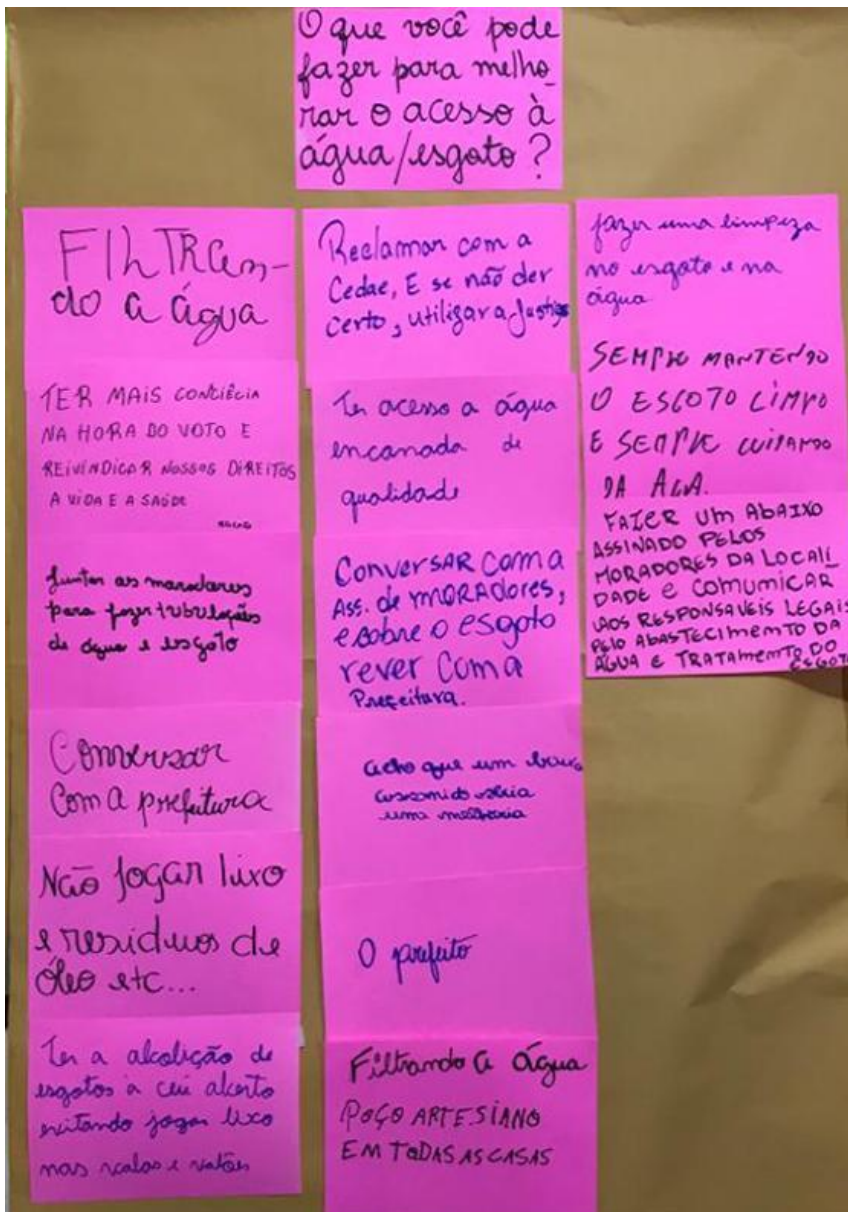 O que você pode
fazer para melho
rar o acesso à
água/esgoto?
FILTRan-
do a água
TER MAIS CONCIÊCIA
NA HORA DO VOTO E
REIVINDICAR NOSSOS DIREITOS
A VIDA E A SAÚDE
Juntar as moradores
para fazer tubulações
de água e esgoto
Conversar
com a prefeitura
Não jogar lixo
e residuos de
óleo etc...
Ter a abolição de
esgotos à céu aberto
evitando jogar lixo
nas valas e
Reclamar com a
Cedae, E se não der
certo, utilizar a Justiça
Ter acesso a água
encanada de
qualidade
Conversar com a
Ass. de MORADORES,
e sobre o esgoto
rever com a
Prefeitura.
acho que um
seria
uma melhoria
O prefeito
Filtrando a água
POÇO ARTESIANO
EM TODAS AS CASAS
fazer uma limpeza
no esgoto e na
água
SEMPRE MANTENDO
O ESGOTO LIMPO
E SEMPRE CUIDANDO
DA AGA.
FAZER UM ABAIXO
ASSINADO PELOS
MORADORES DA LOCALI_
DADE e COMUMICAR
AOS RESPONSAVEIS LEGAIS
PELO ABASTECIMEMTO DA
ÁGUA E TRATAMEMTO DO
ESGOTO